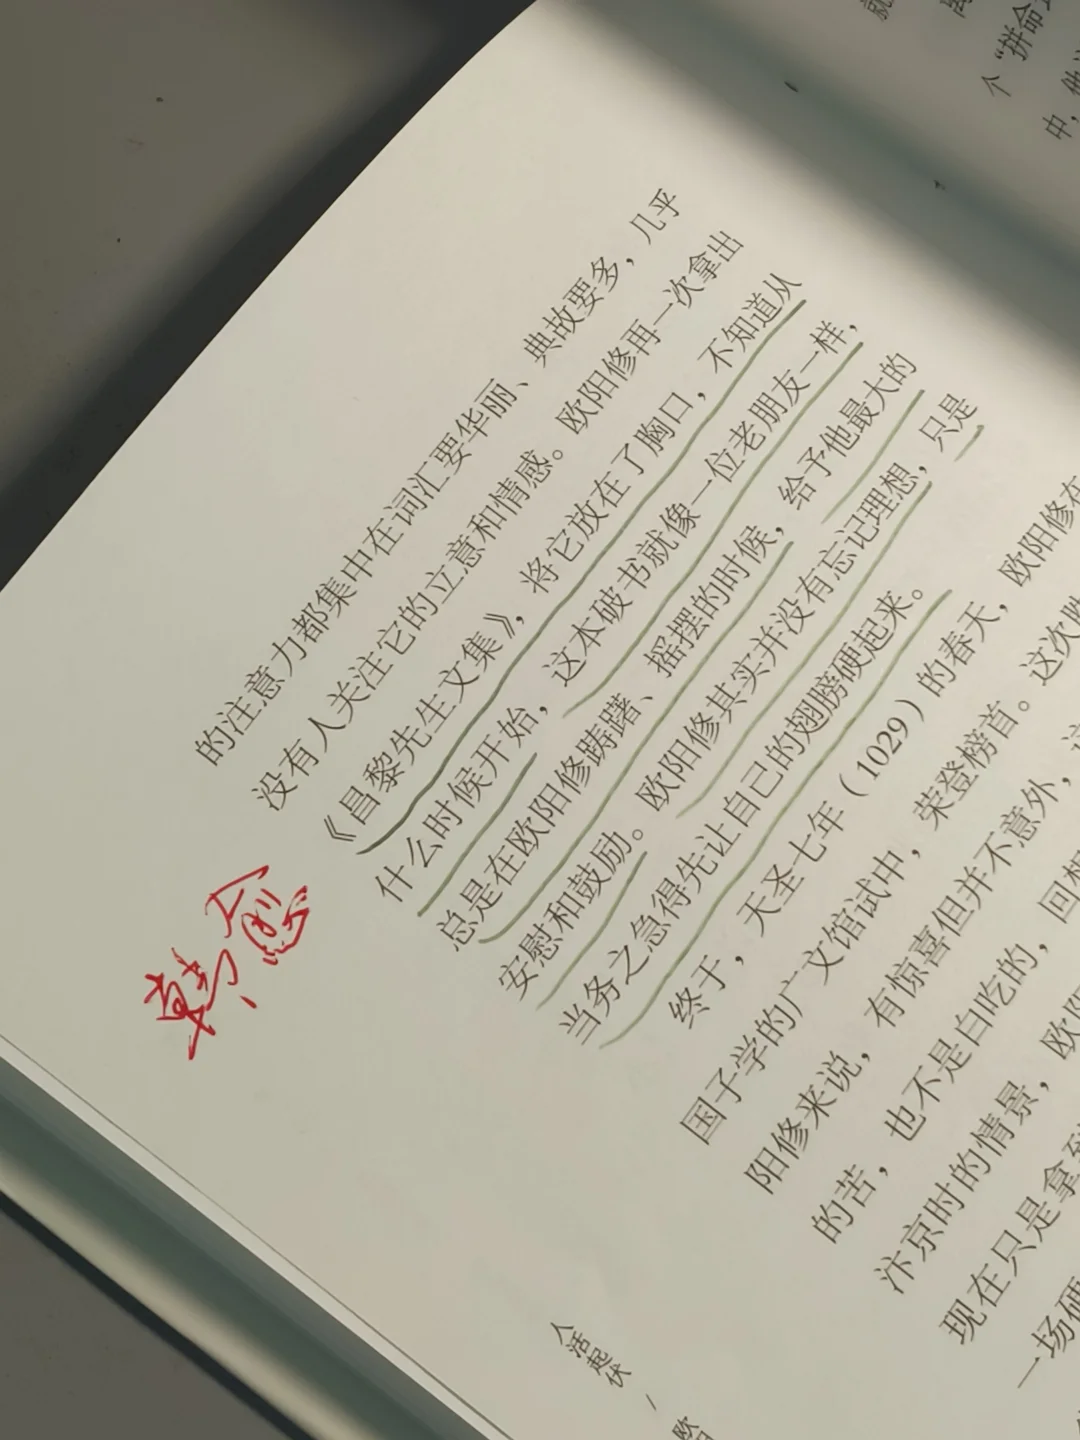 个“拼命
中，他
的注意力都集中在词汇要华丽、典故要多，几乎
没有人关注它的立意和情感。欧阳修再一次拿出
《昌黎先生文集》，将它放在了胸口，不知道从
什么时候开始，这本破书就像一位老朋友一样，
总是在欧阳修踌躇、摇摆的时候，给予他最大的
安慰和鼓励。欧阳修其实并没有忘记理想，只是
当务之急得先让自己的翅膀硬起来。
终于，天圣七年（1029）的春天，欧阳修在
国子学的广文馆试中，荣登榜首。这次
阳修来说，有惊喜但并不意外，
的苦，也不是白吃的，回想
汴京时的情景，欧阳
现在只是拿到
一场硬
韩愈
人活起伏 / 欧阳